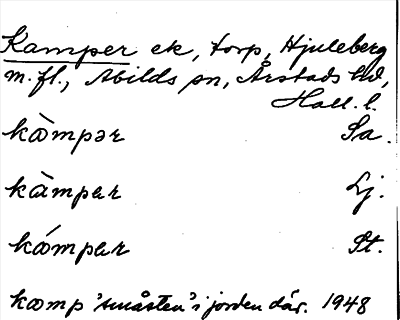 Kamper ek, torp, Hjuleberg
m. fl., Abilds sn, Årstads hd,
Hall. l.
kæ̀mpər Sa.
kæ̀mpeʀ Lj.
kǽmpeʀ St.
kæmp 'småsten' i jorden där. 1948